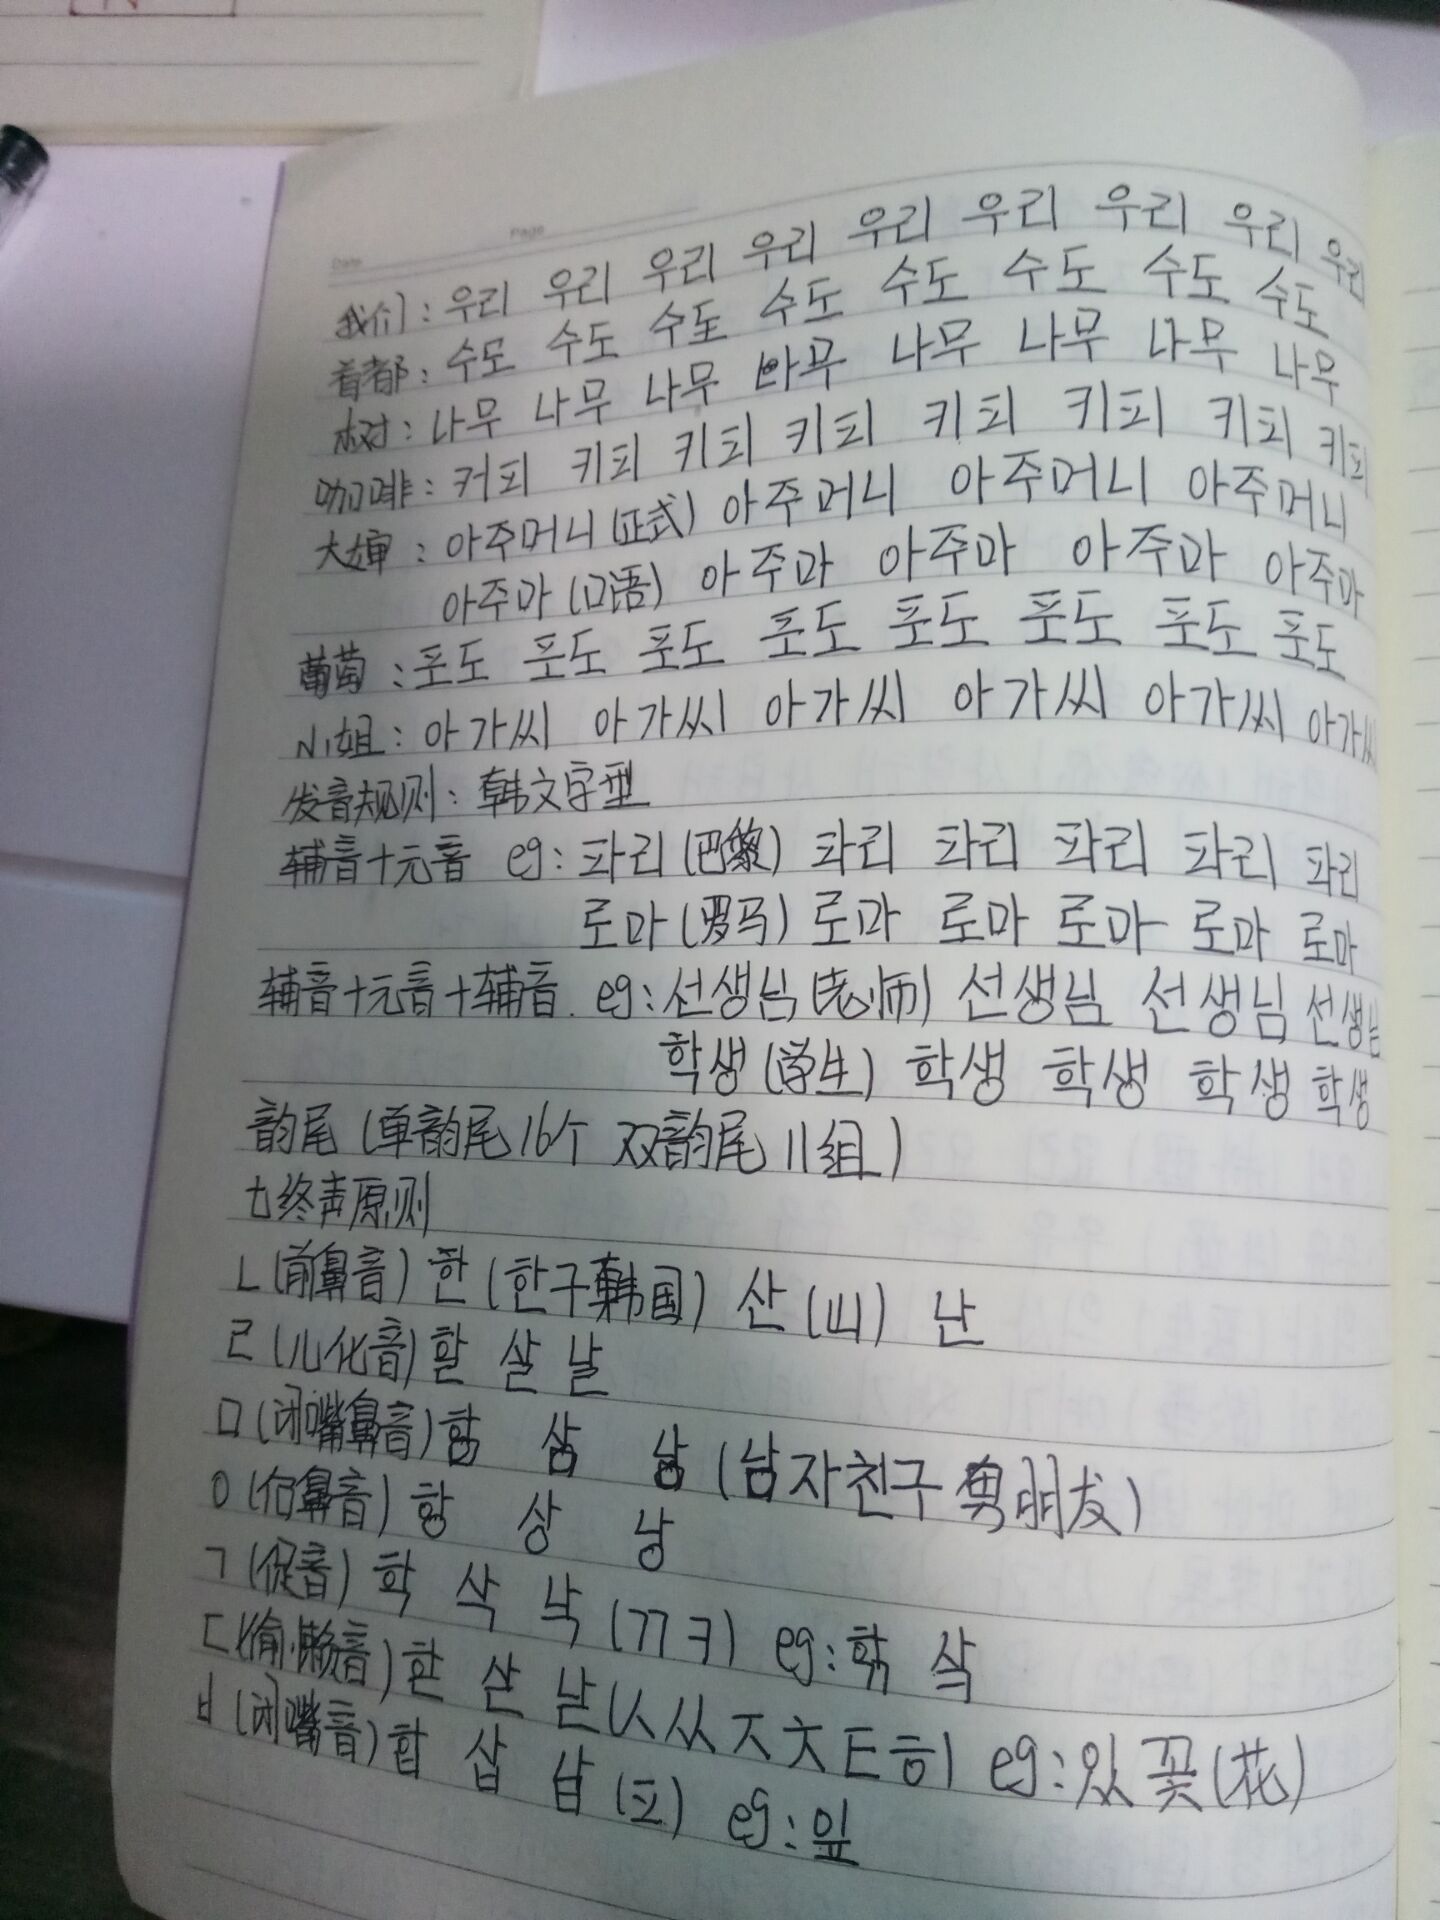 Page
Date
我们：우리 우리 우리 우리 우리 우리 우리 우리 우리
首都：수도 수도 수도 수도 수도 수도 수도 수도
树：나무 나무 나무 나무 나무 나무 나무 나무
咖啡：커피 키피 키피 키피 키피 키피 키피 키피
大婶：아주머니(正式) 아주머니 아주머니 아주머니
아주마(口语) 아주마 아주마 아주마 아주마
葡萄：포도 포도 포도 포도 포도 포도 포도 포도
小姐：아가씨 아가씨 아가씨 아가씨 아가씨 아가씨
发音规则：韩文字型
辅音+元音 eg：파리(巴黎) 파리 파리 파리 파리 파리
로마(罗马) 로마 로마 로마 로마 로마
辅音+元音+辅音. eg：선생님(老师) 선생님 선생님 선생님
학생(学生) 학생 학생 학생 학생
韵尾(单韵尾16个 双韵尾11组)
七终声原则
ㄴ(前鼻音) 한(한구韩国) 산(山) 난
ㄹ(儿化音) 할 살 날
ㅁ(闭嘴鼻音) 함 삼 남(남자친구 男朋友)
ㅇ(后鼻音) 항 상 낭
ㄱ(促音) 학 삭 낙(ㄲㅋ) eg：핚 삭
ㄷ(偷懒音) 핟 삳 낟(ㅅㅆㅈㅊㅌㅎ) eg：있 꽃(花)
ㅂ(闭嘴音) 합 삽 납(ㅍ) eg：잎